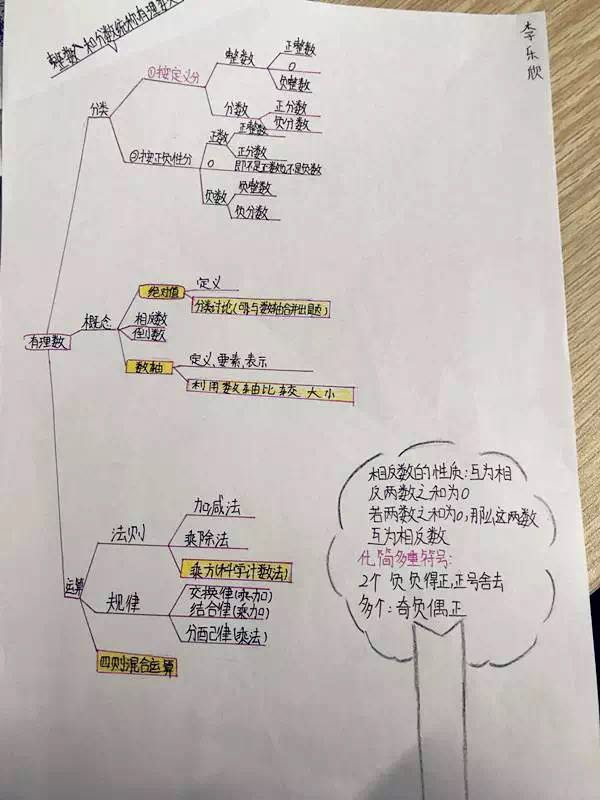 整数和分数统称有理数
李乐欣
有理数
分类
①按定义分
整数
正整数
0
负整数
分数
正分数
负分数
②按正负性分
正数
正整数
正分数
0
即不是正数也不是负数
负数
负整数
负分数
概念
绝对值
定义
分类讨论(可与数轴合并出题)
相反数
倒数
数轴
定义、要素、表示
利用数轴比较大小
运算
法则
加减法
乘除法
乘方(科学计数法)
规律
交换律(乘加)
结合律(乘加)
分配律(乘法)
四则混合运算
相反数的性质:互为相
反两数之和为0
若两数之和为0,那么这两数
互为相反数
化简多重符号:
2个负负得正,正号舍去
多个:奇负偶正